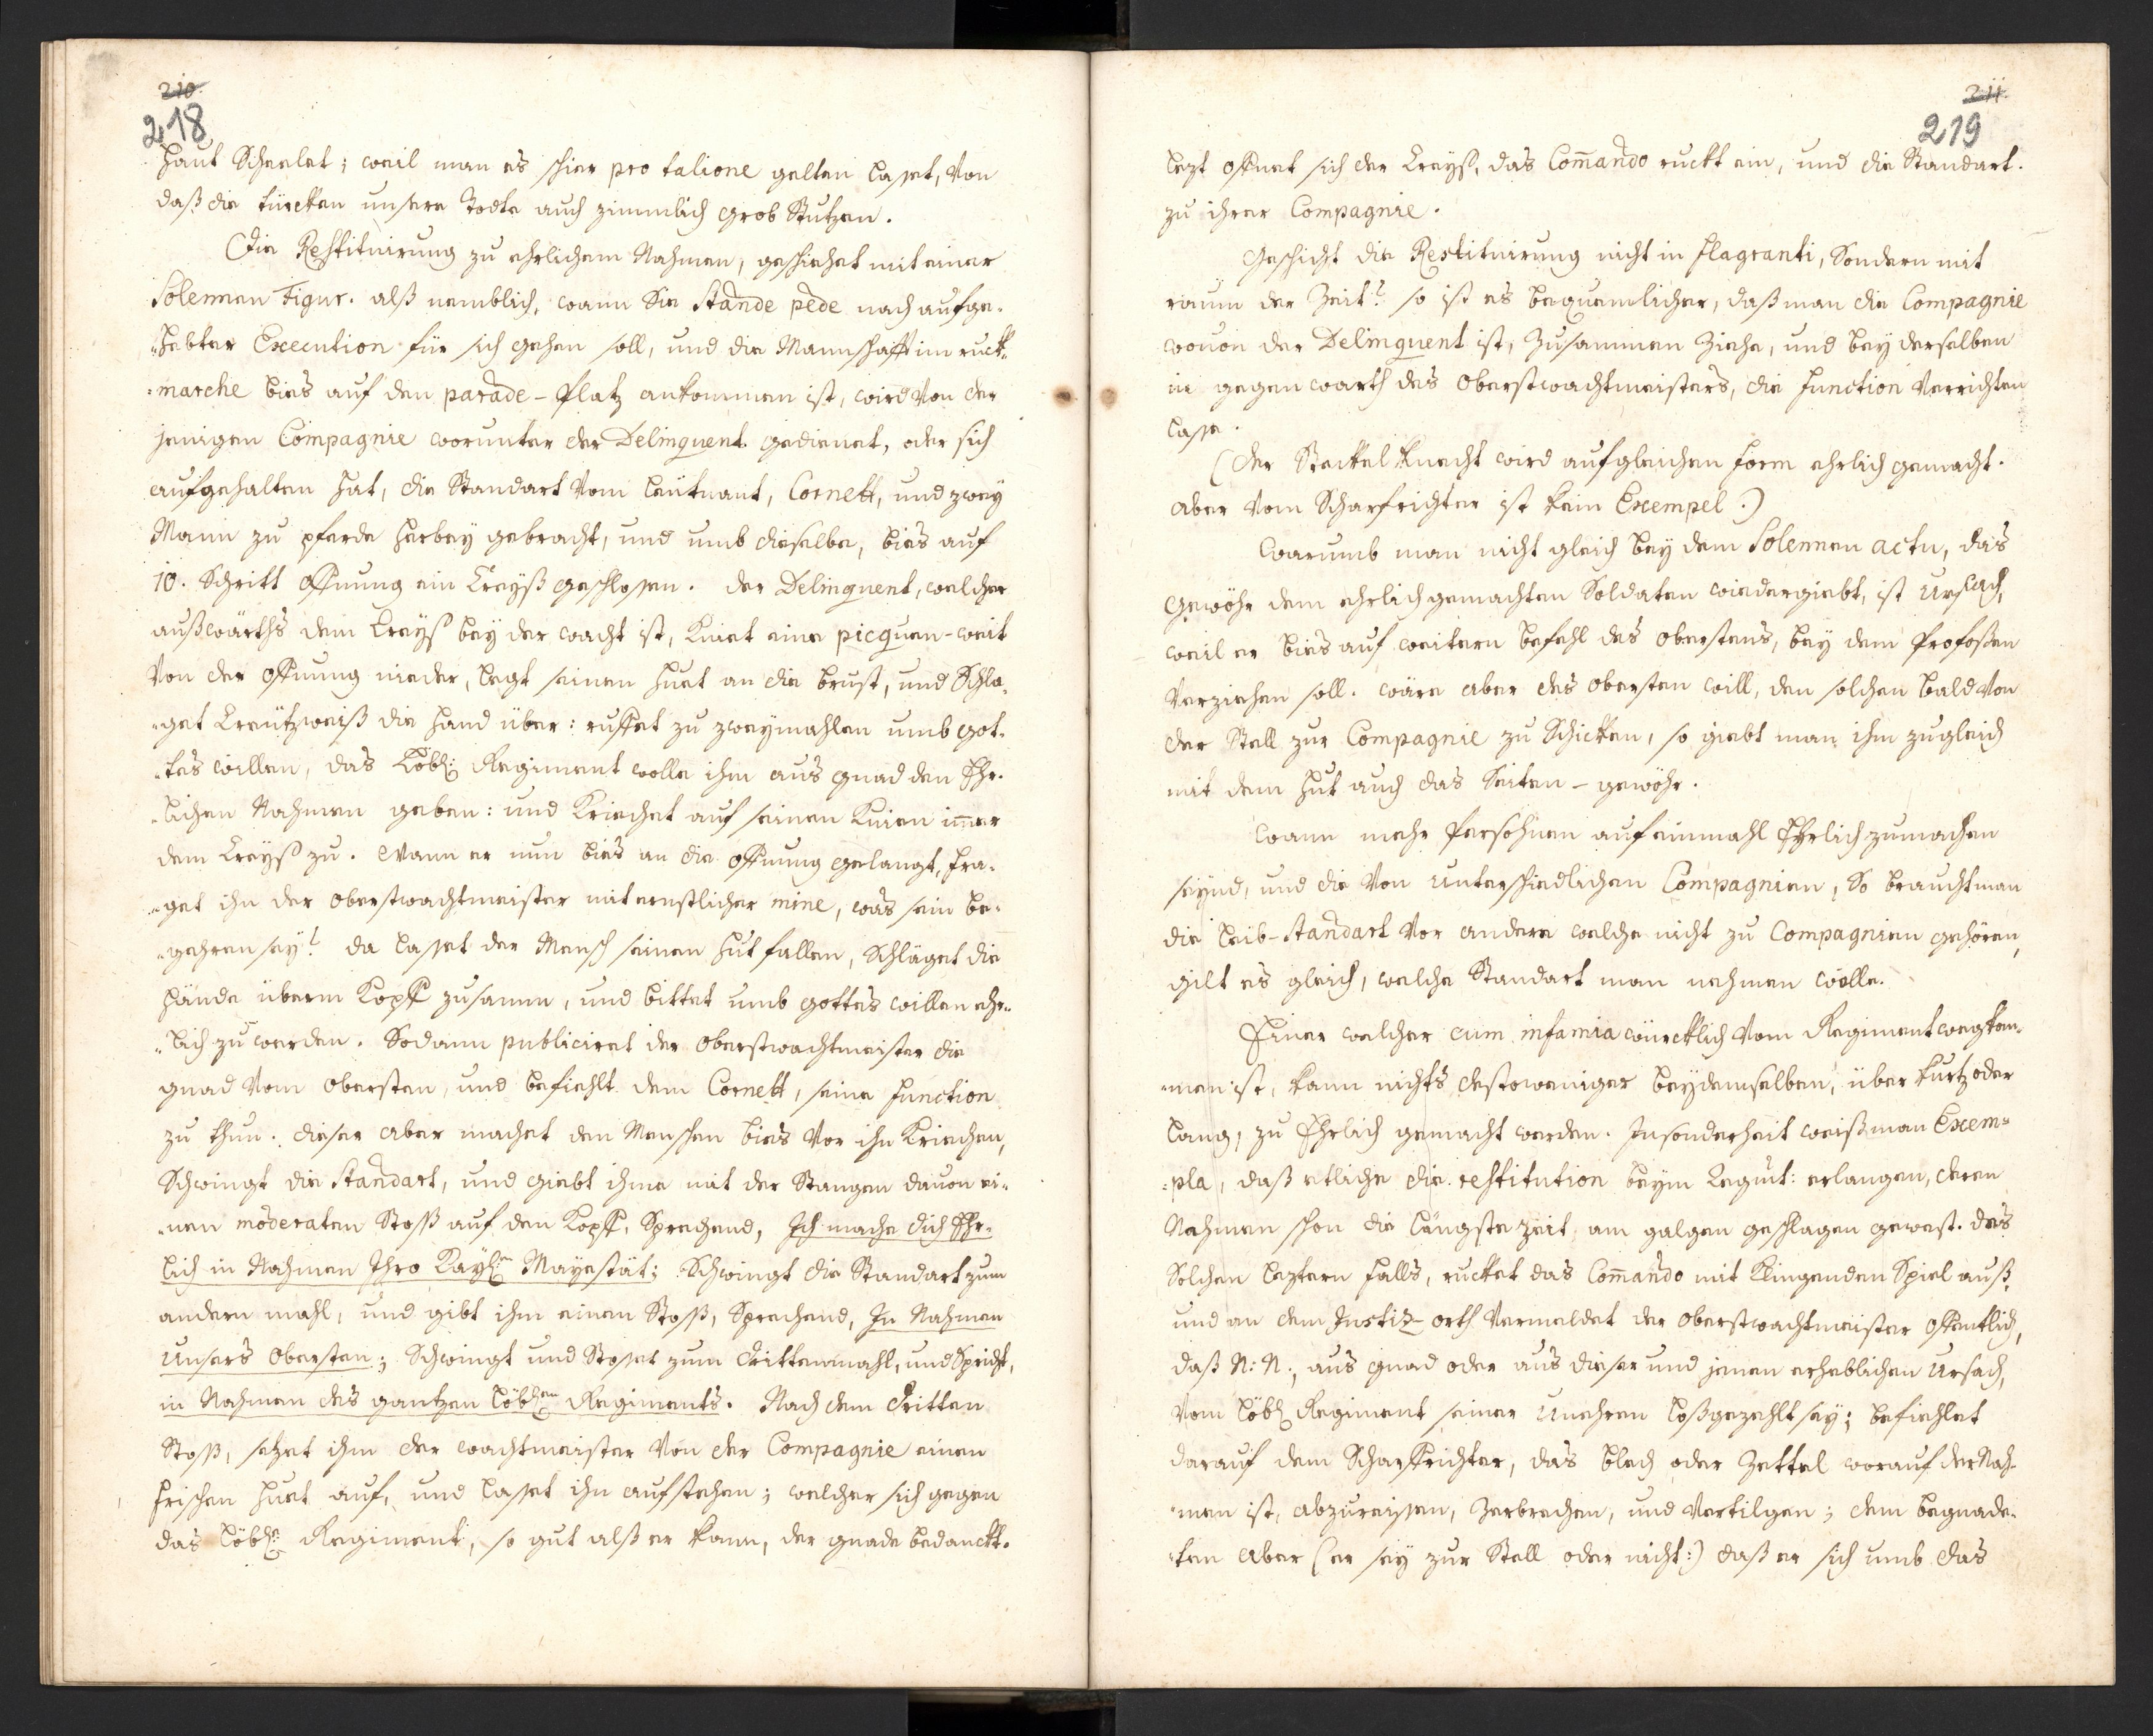 210.
218
haut Scheelet; weil man es schier pro talione gelten lasset, Von
daß die türcken unsere Todte auch zimmlich grob Stutzen.
Die Restituirung zu ehrlichem Nahmen, geschiehet mit einer
Solennen Figur. alß nemblich, wann Sie stande pede nach aufge-
„hebter Execution für sich gehen soll, und die Mannschafft im ruck„
„marche biß auf den parade-Platz ankommen ist, wird Von der
jenigen Compagnie worunter der Delinquent gedienet, oder sich
aufgehalten hat, die Standart Vom leütnant, Cornett, und zweÿ
Mann zu pferde herbeÿ gebracht, und umb dieselbe, bies auf
10. Schritt Öffnung ein Creÿß geschlossen. der Delinquent, welcher
außwärths dem Creÿß beÿ der wacht ist, Kniet eine picquen-weit
Von der Öffnung nieder, legt seinen huet an die brust, und Schla„
„get Creützweiß die hand über: ruffet zu zweÿmahlen umb Got„
„tes willen, das Löbl: Regiment wolle ihm aus gnad den Ehr„
„lichen Nahmen geben: und Kriechet auf seinen Knien im̄er
dem Creÿß zu. Wann er nun bies an die Öffnung gelangt, Fra„
„get ihn der Oberstwachtmeister mit ernstlicher mine, was sein be„
„gehren seÿ? da lasset der Mensch seinen hut fallen, Schläget die
hände überm Kopff zusamm, und bittet umb gottes willen ehr„
„lich zu werden. Sodann publiciret der Oberstwachtmeister die
gnad Vom Obersten, und befiehlt dem Cornett, seine Function
zu thun. dieser aber machet den Menschen bies Vor ihn Kriechen,
Schwingt die Standart, und giebt ihme mit der Stangen dauon ei„
„nen moderaten Stoß auf den Kopff, Sprechend, Ich mache dich Ehr„
lich in Nahmen Ihro Kaÿl:n Mayestät; Schwingt die Standart zum
andern mahl, und gibt ihm einen Stoß, Sprechend, In Nahmen
Unsers Obersten; Schwingt und Stosset zum drittenmahl, und Spricht,
in Nahmen des gantzen Löblen Regiments. Nach dem dritten
Stoß, setzet ihm der wachtmeister Von der Compagnie einen
frischen huet auf, und lasset ihn aufstehen; welcher sich gegen
das Löbl: Regiment, so gut alß er kann, der gnade bedanckt.
211.
219
lezt öffnet sich der Creÿß, das Com̄ando ruckt ein, und die Standart.
zu ihrer Compagnie.
Geschicht die Restituirung nicht in flagranti, Sondern mit
raum der Zeit? so ist es bequemlicher, daß man die Compagnie
wouon der Delinquent ist, Zusammen Ziehe, und beÿ derselben
in gegenwarth des Oberstwachtmeisters, die function Verrichten
lasse.
(der Steckel Knecht wird auf gleichen form ehrlich gemacht.
aber Vom Scharfrichter ist kein Exempel.)
Warumb man nicht gleich beÿ dem Solennen actu, das
Gewöhr dem ehrlich gemachten Soldaten wiedergiebt, ist Ursach,
weil er bies auf weitern befehl des Oberstens, beÿ dem Profoßen
Verziehen soll. wäre aber des Obersten will, den solchen bald Von
der Stell zur Compagnie zu Schicken, so giebt man ihm zugleich
mit dem hut auch das Seiten-gewöhr.
Wann mehr Persohnen auf einmahl Ehrlich zumachen
seÿnd, und die Von Unterschiedlichen Compagnien, So braucht man
die Leib-Standart Vor andere welche nicht zu Compagnien gehören,
gilt es gleich, welche Standart man nehmen wolle.
Einer welcher cum infamia würcklich Vom Regiment wegkom„
„men ist, kann nichts destoweniger beÿ demselben, über kurtz oder
lang, zu Ehrlich gemacht werden. Insonderheit weiß man Exem„
„pla, daß etliche die restitution beÿm Regmt: erlangen, deren
Nahmen schon die längste zeit am galgen geschlagen gewest. des
Solchen leztern Falls, rucket das Com̄ando mit Klingenden Spiel auß,
und an dem Justiz-orth Vermeldet der Oberstwachtmeister Öffentlich,
daß N: N:, aus gnad oder aus dieser und jenen erheblichen Ursach,
Vom Löbl: Regiment seiner Unehren loßgezehlt seÿ; befiehlet
darauf dem Scharffrichter, das blech oder Zettel worauf der Nah„
„men ist, abzureissen, Zerbrechen, und Vertilgen; dem begnade„
„ten aber (er seÿ zur Stell oder nicht:) daß er sich umb das